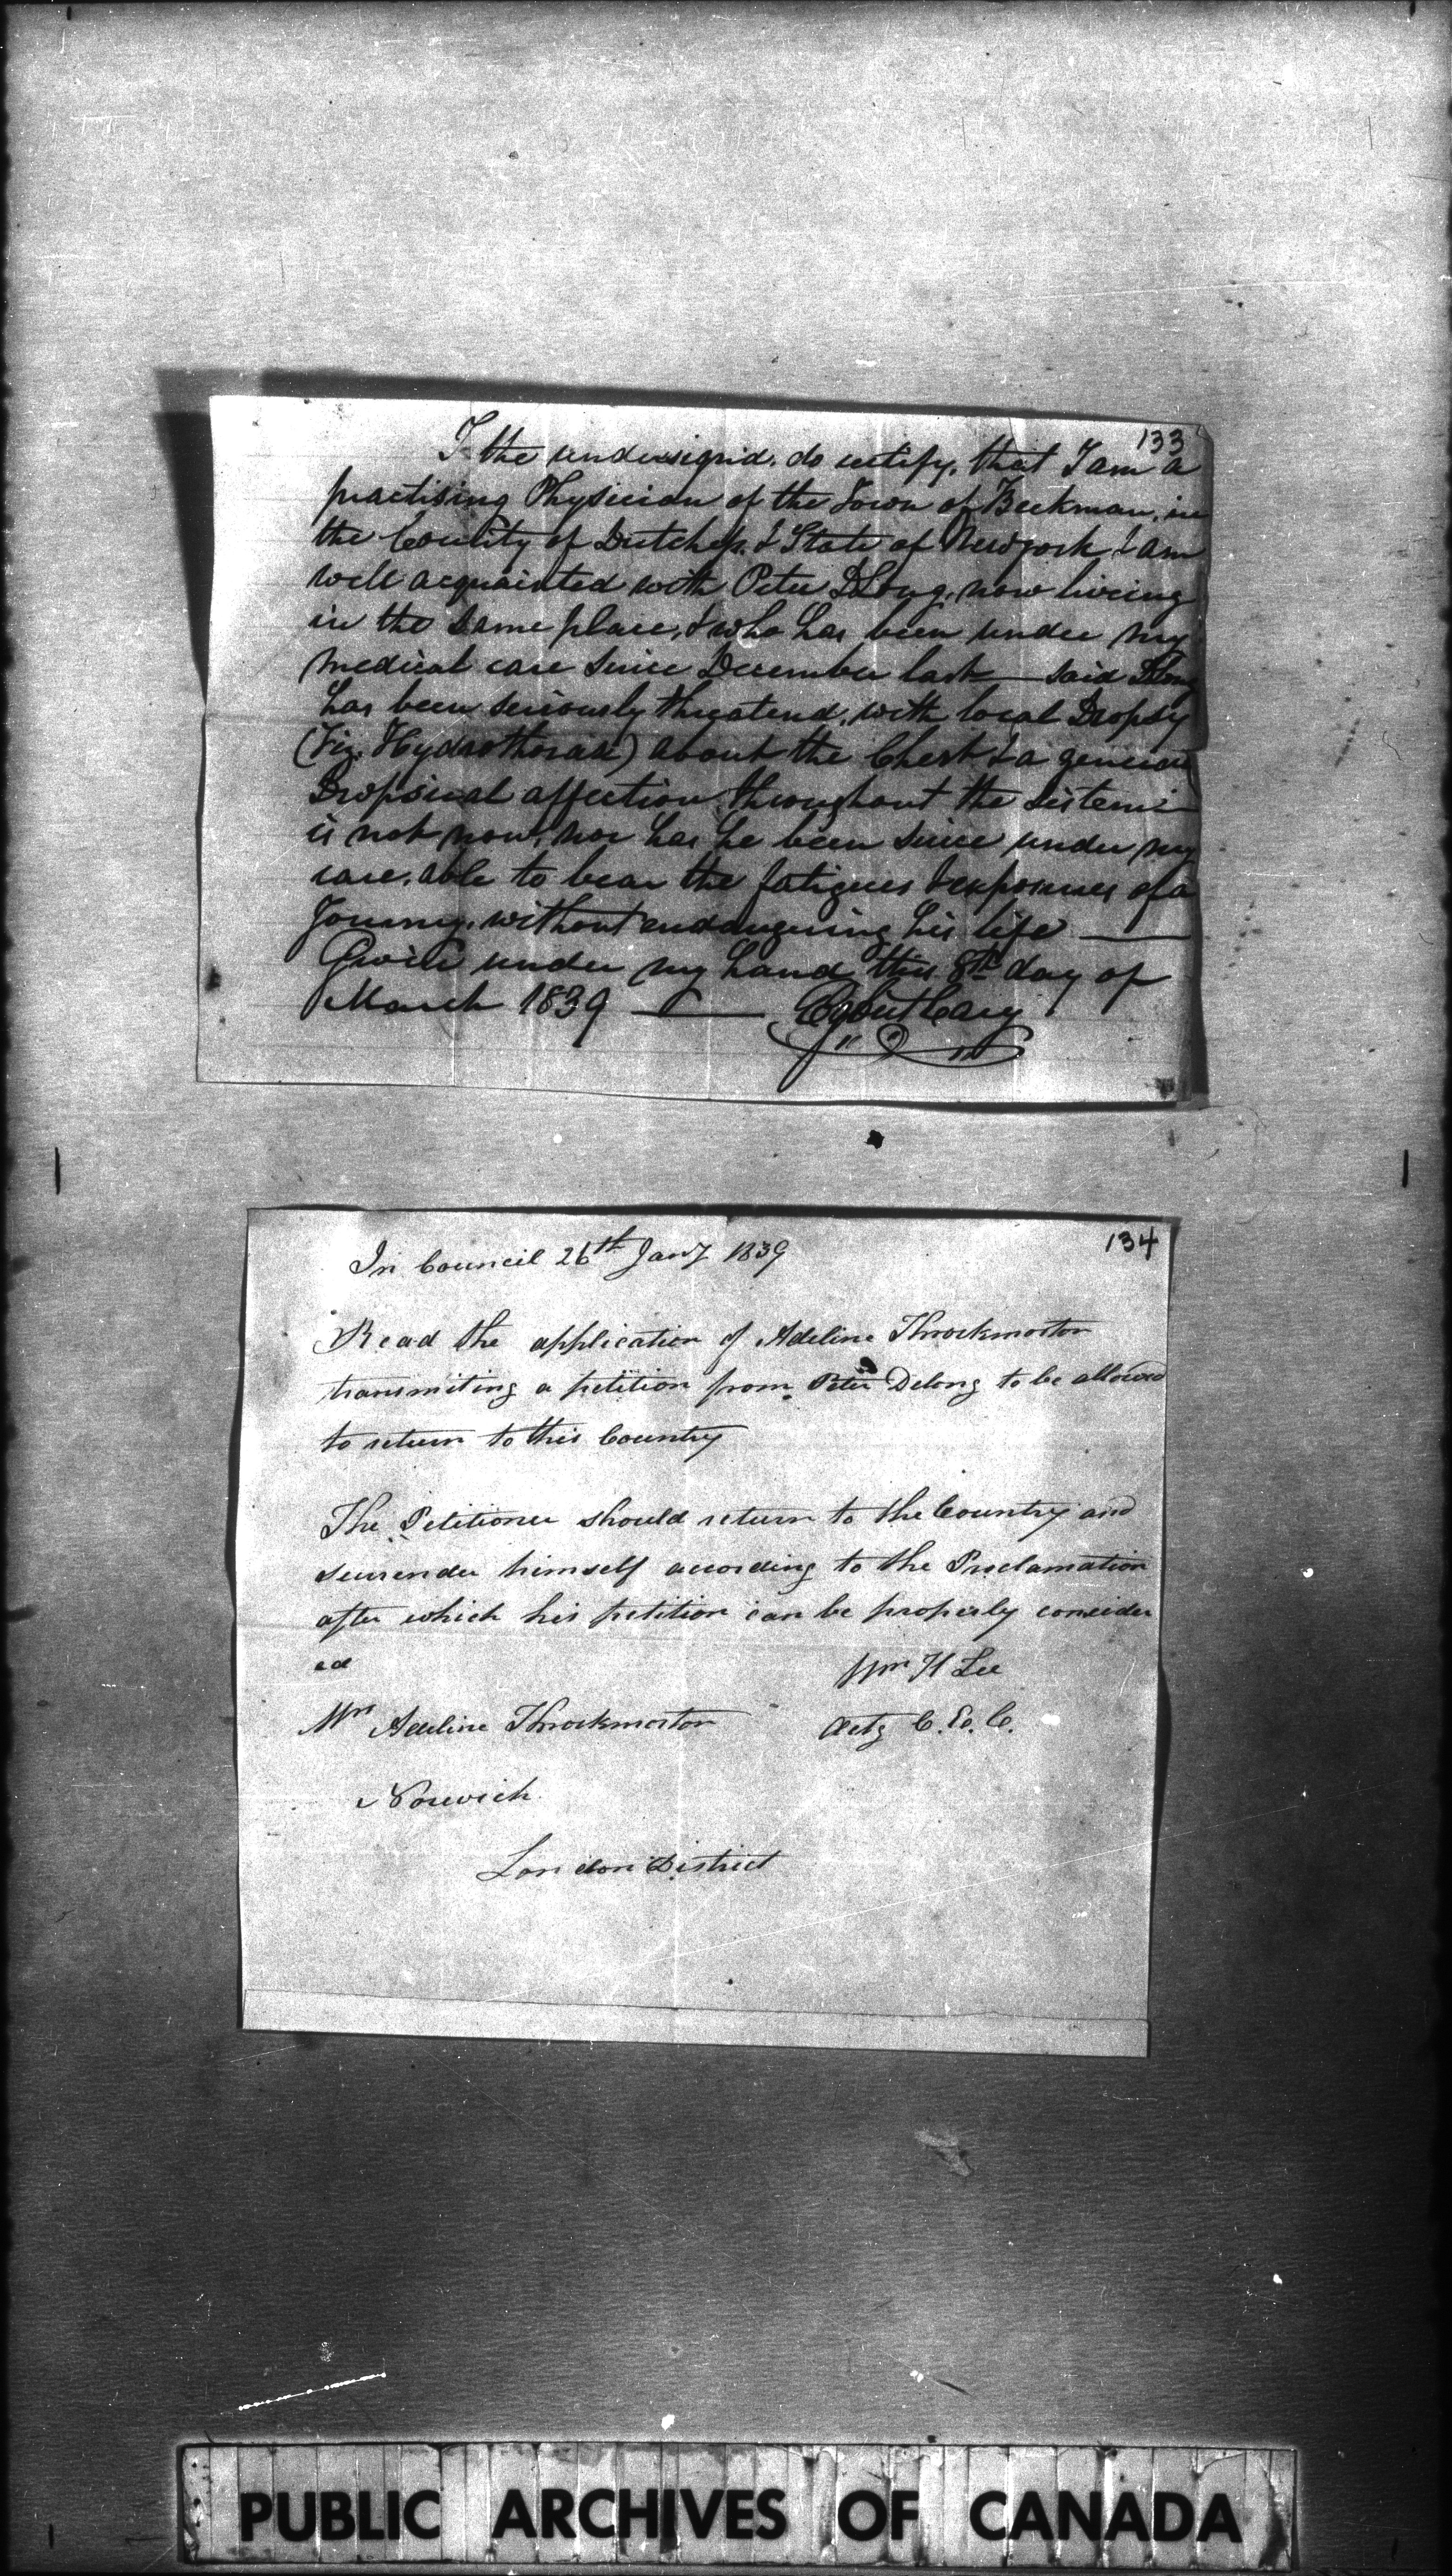 133
I the undersignd. do certify. that I am a
practising Physician of the Town of Beekman, in
the County of Dutchess. & State of Newyork & am
well acquainted with Peter DLong, now living
in the same place, & who has been under my
medical care since December last — said DLong
has been seriously threatend, with local Dropsy
(Viz. Hydrothorax) about the Chest & a general
Dropsical affection throughout the sistem
is not now, nor has he been since under my
care, able to bear the fatigues & exposures of a
Journy, without endangering his life —
Given under my hand this 8th day of
March 1839 — Egbert Cary
134
In Council 26th Jany 1839
Read the application of Adeline Throckmorton
transmiting a petition from Peter Delong to be allowed
to return to this Country
The Petitioner should return to the Country and
surrender himself according to the Proclamation
after which his petition can be properly consider
ed
Wm H Lee
Mrs Adeline Throckmorton Actg C. Ex. C.
Norwich
London District
PUBLIC ARCHIVES OF CANADA